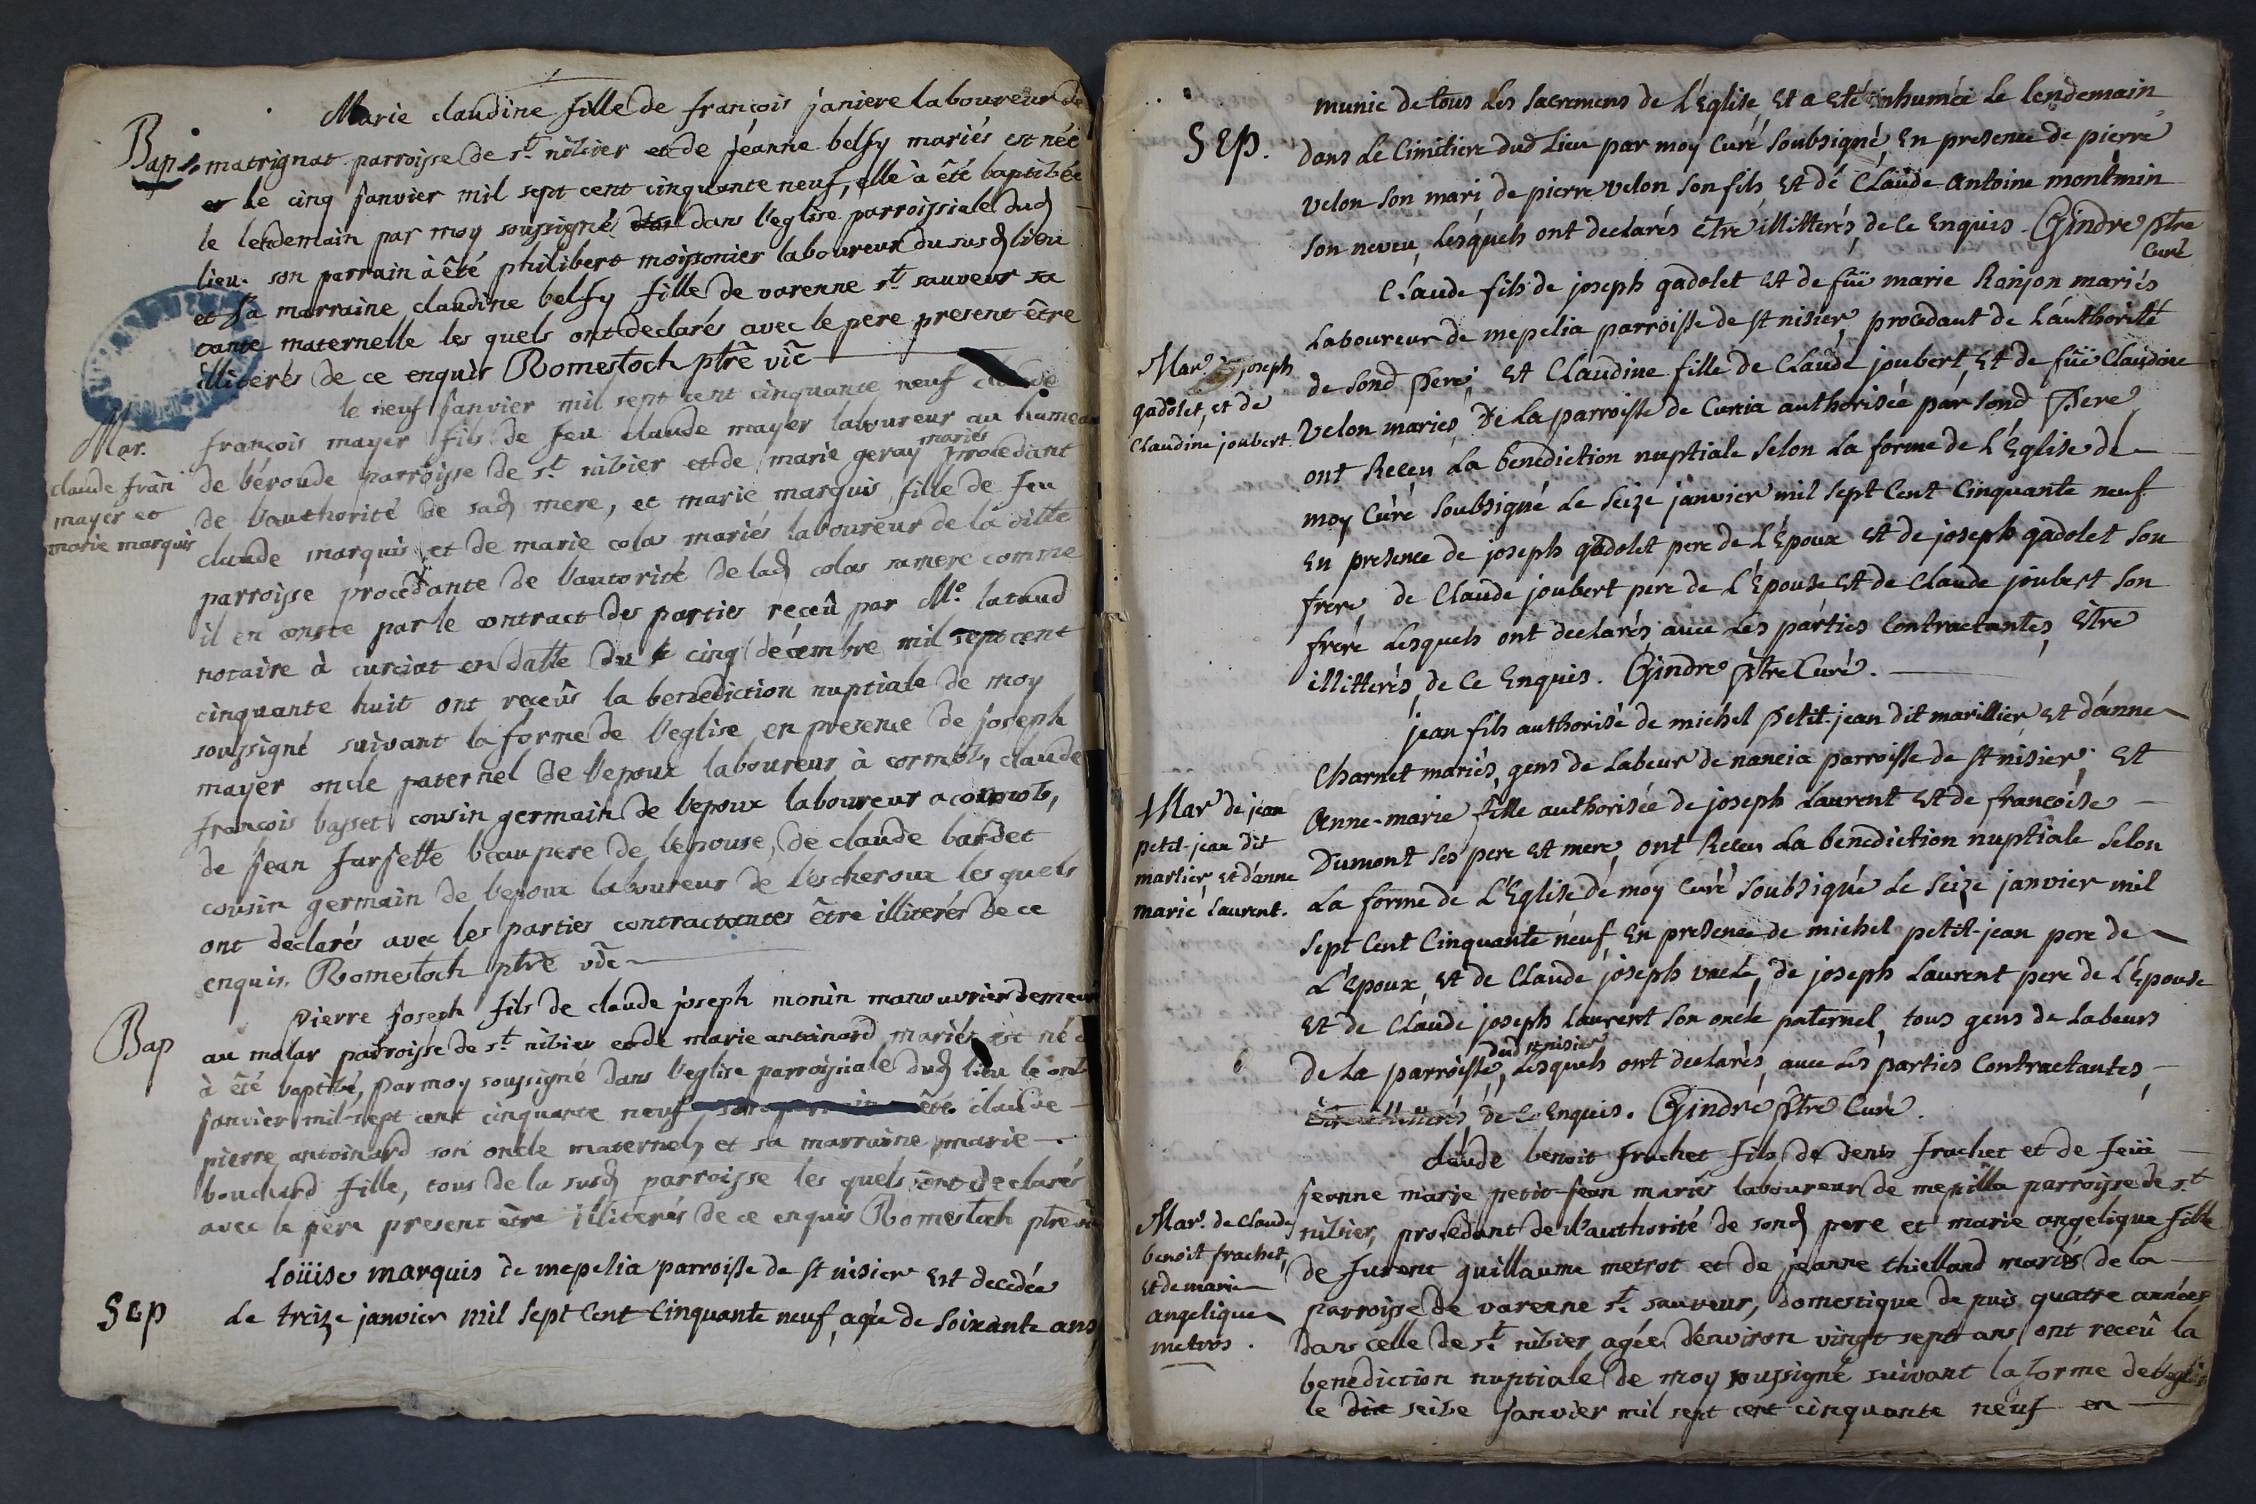 Marie claudine fille de françois janiere laboureur de
Bap. matrignat parroisse de st nibier et de jéanne belfy mariés est née
le cinq janvier mil sept cent cinquante neuf, elle à été baptisée
le lendemain par moy soussigné dans l'eglise parroissiale dud
lieu. son parrain à êté philibert moissonier laboureur du susd lieu
et sa marraine claudine belfy fille de varenne st sauveur sa
tante maternelle les quels ont declarés avec le pere present être
illiterés de ce enquis Romestoch ptre vic
le neuf janvier mil sept cent cinquante neuf claude
Mar.
claude fran
mayer et
marie marquis
françois mayer fils de feu claude mayer laboureur au hameau
de béroude parroisse de st nibier et de marie geray mariés procedant
de l'authorité de sad mere, et marie marquis fille de feu
claude marquis et de marie colas mariés laboureur de la ditte
parroisse procédante de l'autorité de lad colas sa mere comme
il en conste par le contract des parties receû par Me lataud
notaire à curciat en datte du cinq décembre mil sept cent
cinquante huit ont receûs la benediction nuptiale de moy
soussigné suivant la forme de l'eglise en presence de joseph
mayer oncle paternel de l'epoux laboureur à cormoz, claude
françois basset cousin germain de l'epoux laboureur a cormoz,
de jean furjette beau pere de l'epouse, de claude bardet
cousin germain de l'epoux laboureur de l'escheroux les quels
ont declarés avec les parties contractantes être illiterés de ce
enquis. Romestoch ptre vic
Bap
Pierre joseph fils de claude joseph monin manouvrier demeur
au malar parroisse de st nibier et de marie antoinard mariés est né
à êté baptisé, par moy soussigné dans l'eglise parroissiale dud lieu le
janvier mil sept cent cinquante neuf son parrain êté claude
pierre antoinard son oncle maternel, et sa marraine marie
bouchard fille, tous de la susd parroisse les quels ont declarés
avec le pere present être illiterés de ce enquis Romestoch ptre vic
Loüise marquis de mepelia parroisse de st nisier Est decedée
Sep
Le treize janvier mil Sept Cent Cinquante neuf, agée de Soixante ans
munie de tous Les Sacremens de L'Eglise, Et a Eté inhumée Le lendemain
Sep.
dans Le Cimitiere dud Lieu par moy Curé Soubsigné, En presence de pierre
velon son mari de pierre velon son fils Et de Claude Antoine montmin
son neveu, Lesquels ont declarés être illitterés, de Ce Enquis. Gindre ptre
Curé
Claude fils de joseph gadolet Et de füe marie Ranjon mariés
Laboureur de mepelia parroisse de st nisier, procedant de L'authorité
Mar. de joseph
gadolet, et de
Claudine joubert.
de sond Pere, Et Claudine fille de Claude joubert, Et de füe Claudine
velon mariés, de La parroisse de Curcia authorisée par sond Pere
ont Receu La benediction nuptiale Selon La forme de L'Eglise de
moy Curé Soubsigné Le Seize janvier mil Sept Cent Cinquante neuf
En presence de joseph gadolet pere de L'Epoux Et de joseph gadolet Son
frere, de Claude joubert pere de L'Epouse Et de Claude joubert Son
frere Lesquels ont declarés avec Les parties Contractantes Etre
illitterés, de Ce Enquis. Gindre Ptre Curé.
jean fils authorisé de michel Petit-jean dit marillier Et d'anne
Charnet mariés, gens de Labeur de nancia parroisse de St nisier, Et
Mar. de jean
petit-jean dit
marlier, et d'anne
marie Laurent.
Anne-marie fille authorisée de joseph Laurent Et de françoise
Dumont Ses pere Et mere, ont Receu La benediction nuptiale Selon
La forme de L'Eglise de moy Curé Soubsigné Le Seize janvier mil
Sept Cent Cinquante neuf, En presence de michel petit-jean pere de
L'Epoux, Et de Claude joseph vaclé, de joseph Laurent pere de L'Epouse
Et de Claude joseph Laurent Son oncle paternel, tous gens de Labeurs
de La parroisse dud st nisier, Lesquels ont declarés, avec Les parties Contractantes
Etre illitterés, de Ce Enquis. Gindre Ptre Curé.
claude benoit frachet fils de denis frachet et de feüe
jeanne marie petit-jean mariés laboureur de mepilla parroisse de st
Mar. de Claude
benoit frachet,
Et de marie
Angelique
metros.
nibier, procedant de l'authorité de sond pere et marie angelique fille
de furent guillaume metrot et de jeanne thielland mariés de la
parroisse de varenne st sauveur, domestique depuis quatre années
dans celle de st nibier agée d'environ vingt sept ans, ont receû la
benediction nuptiale de moy soussigné suivant la forme de l'eglise
le dit seise janvier mil sept cent cinquante neuf en